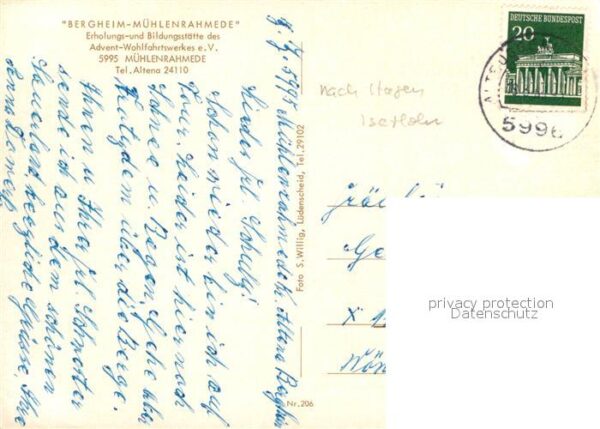 "BERGHEIM-MÜHLENRAHMEDE"
Erholungs-und Bildungsstätte des
Advent-Wohlfahrtswerkes e.V.
5995 MÜHLENRAHMEDE
Tel. Altena 24110
5995 Mühlenrahmede b. Altena Bergheim
Liebes Frl. Schulz!
Schon wieder bin ich auf
Tour. Leider ist hier noch
Schnee u. Regen. Gehe aber
trotzdem über die Berge.
Ihnen u. Ihrer frl. Schwester
sende ich aus dem schönen
Sauerland herzliche Grüsse, Ihre
Foto S. Willig, Lüdenscheid, Tel. 29102
Nr. 206
nach Hagen
Iserlohn
DEUTSCHE BUNDESPOST
20
5996
Fräulein
privacy protection
Datenschutz